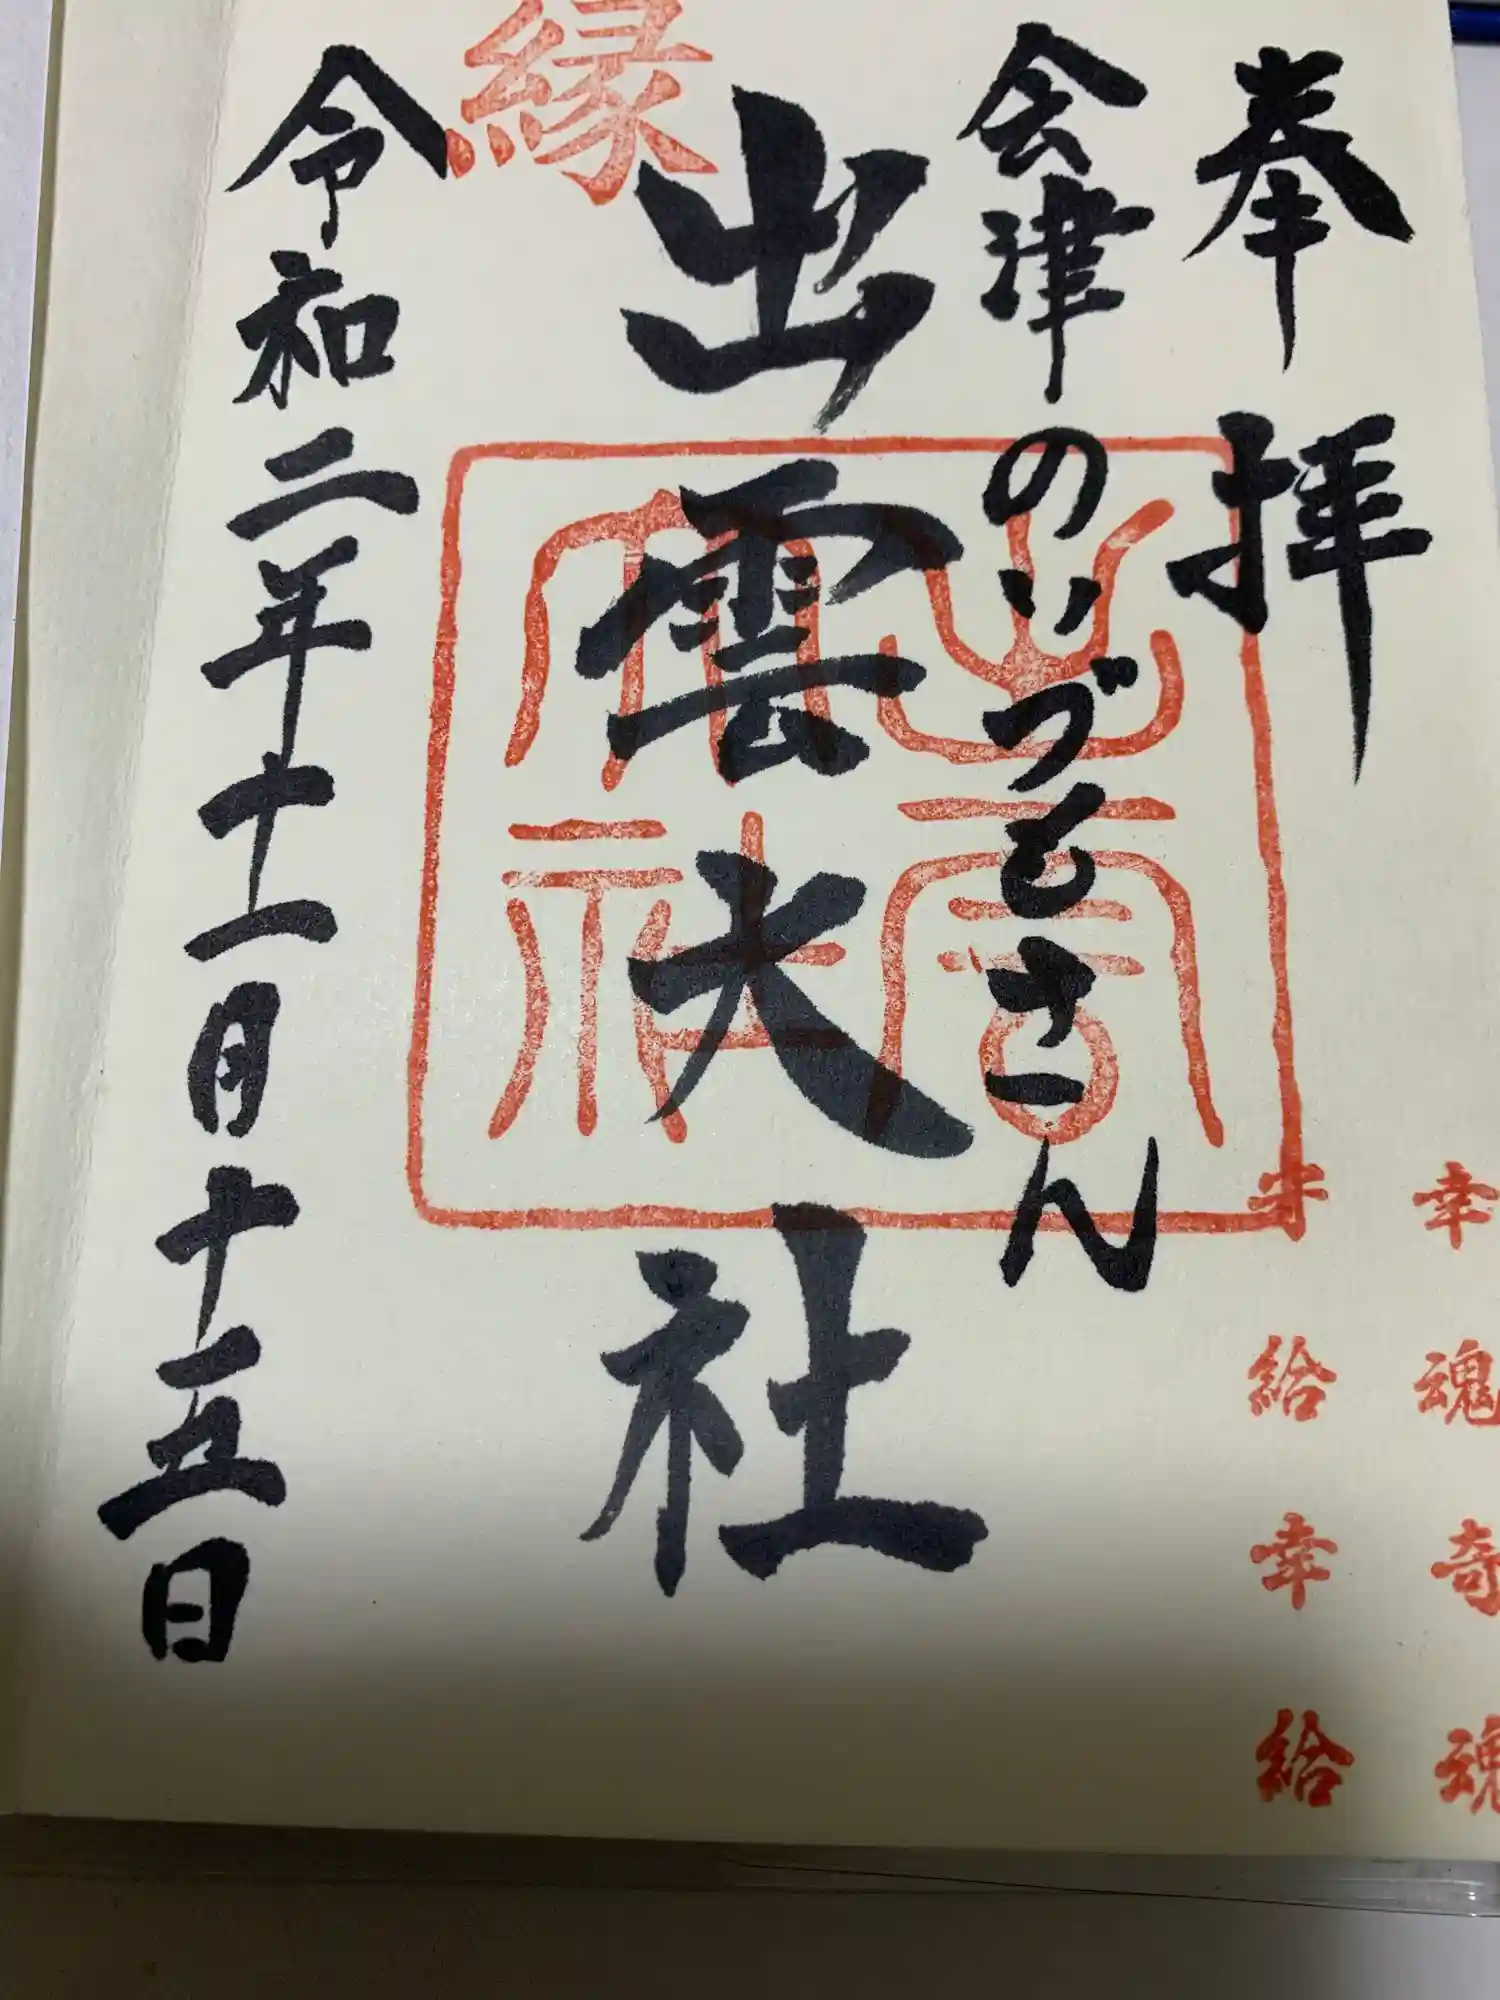 奉拝
会津のいづもさん
出雲大社
令和二年十一月十五日
縁
出雲
大社
幸魂奇魂
守給幸給